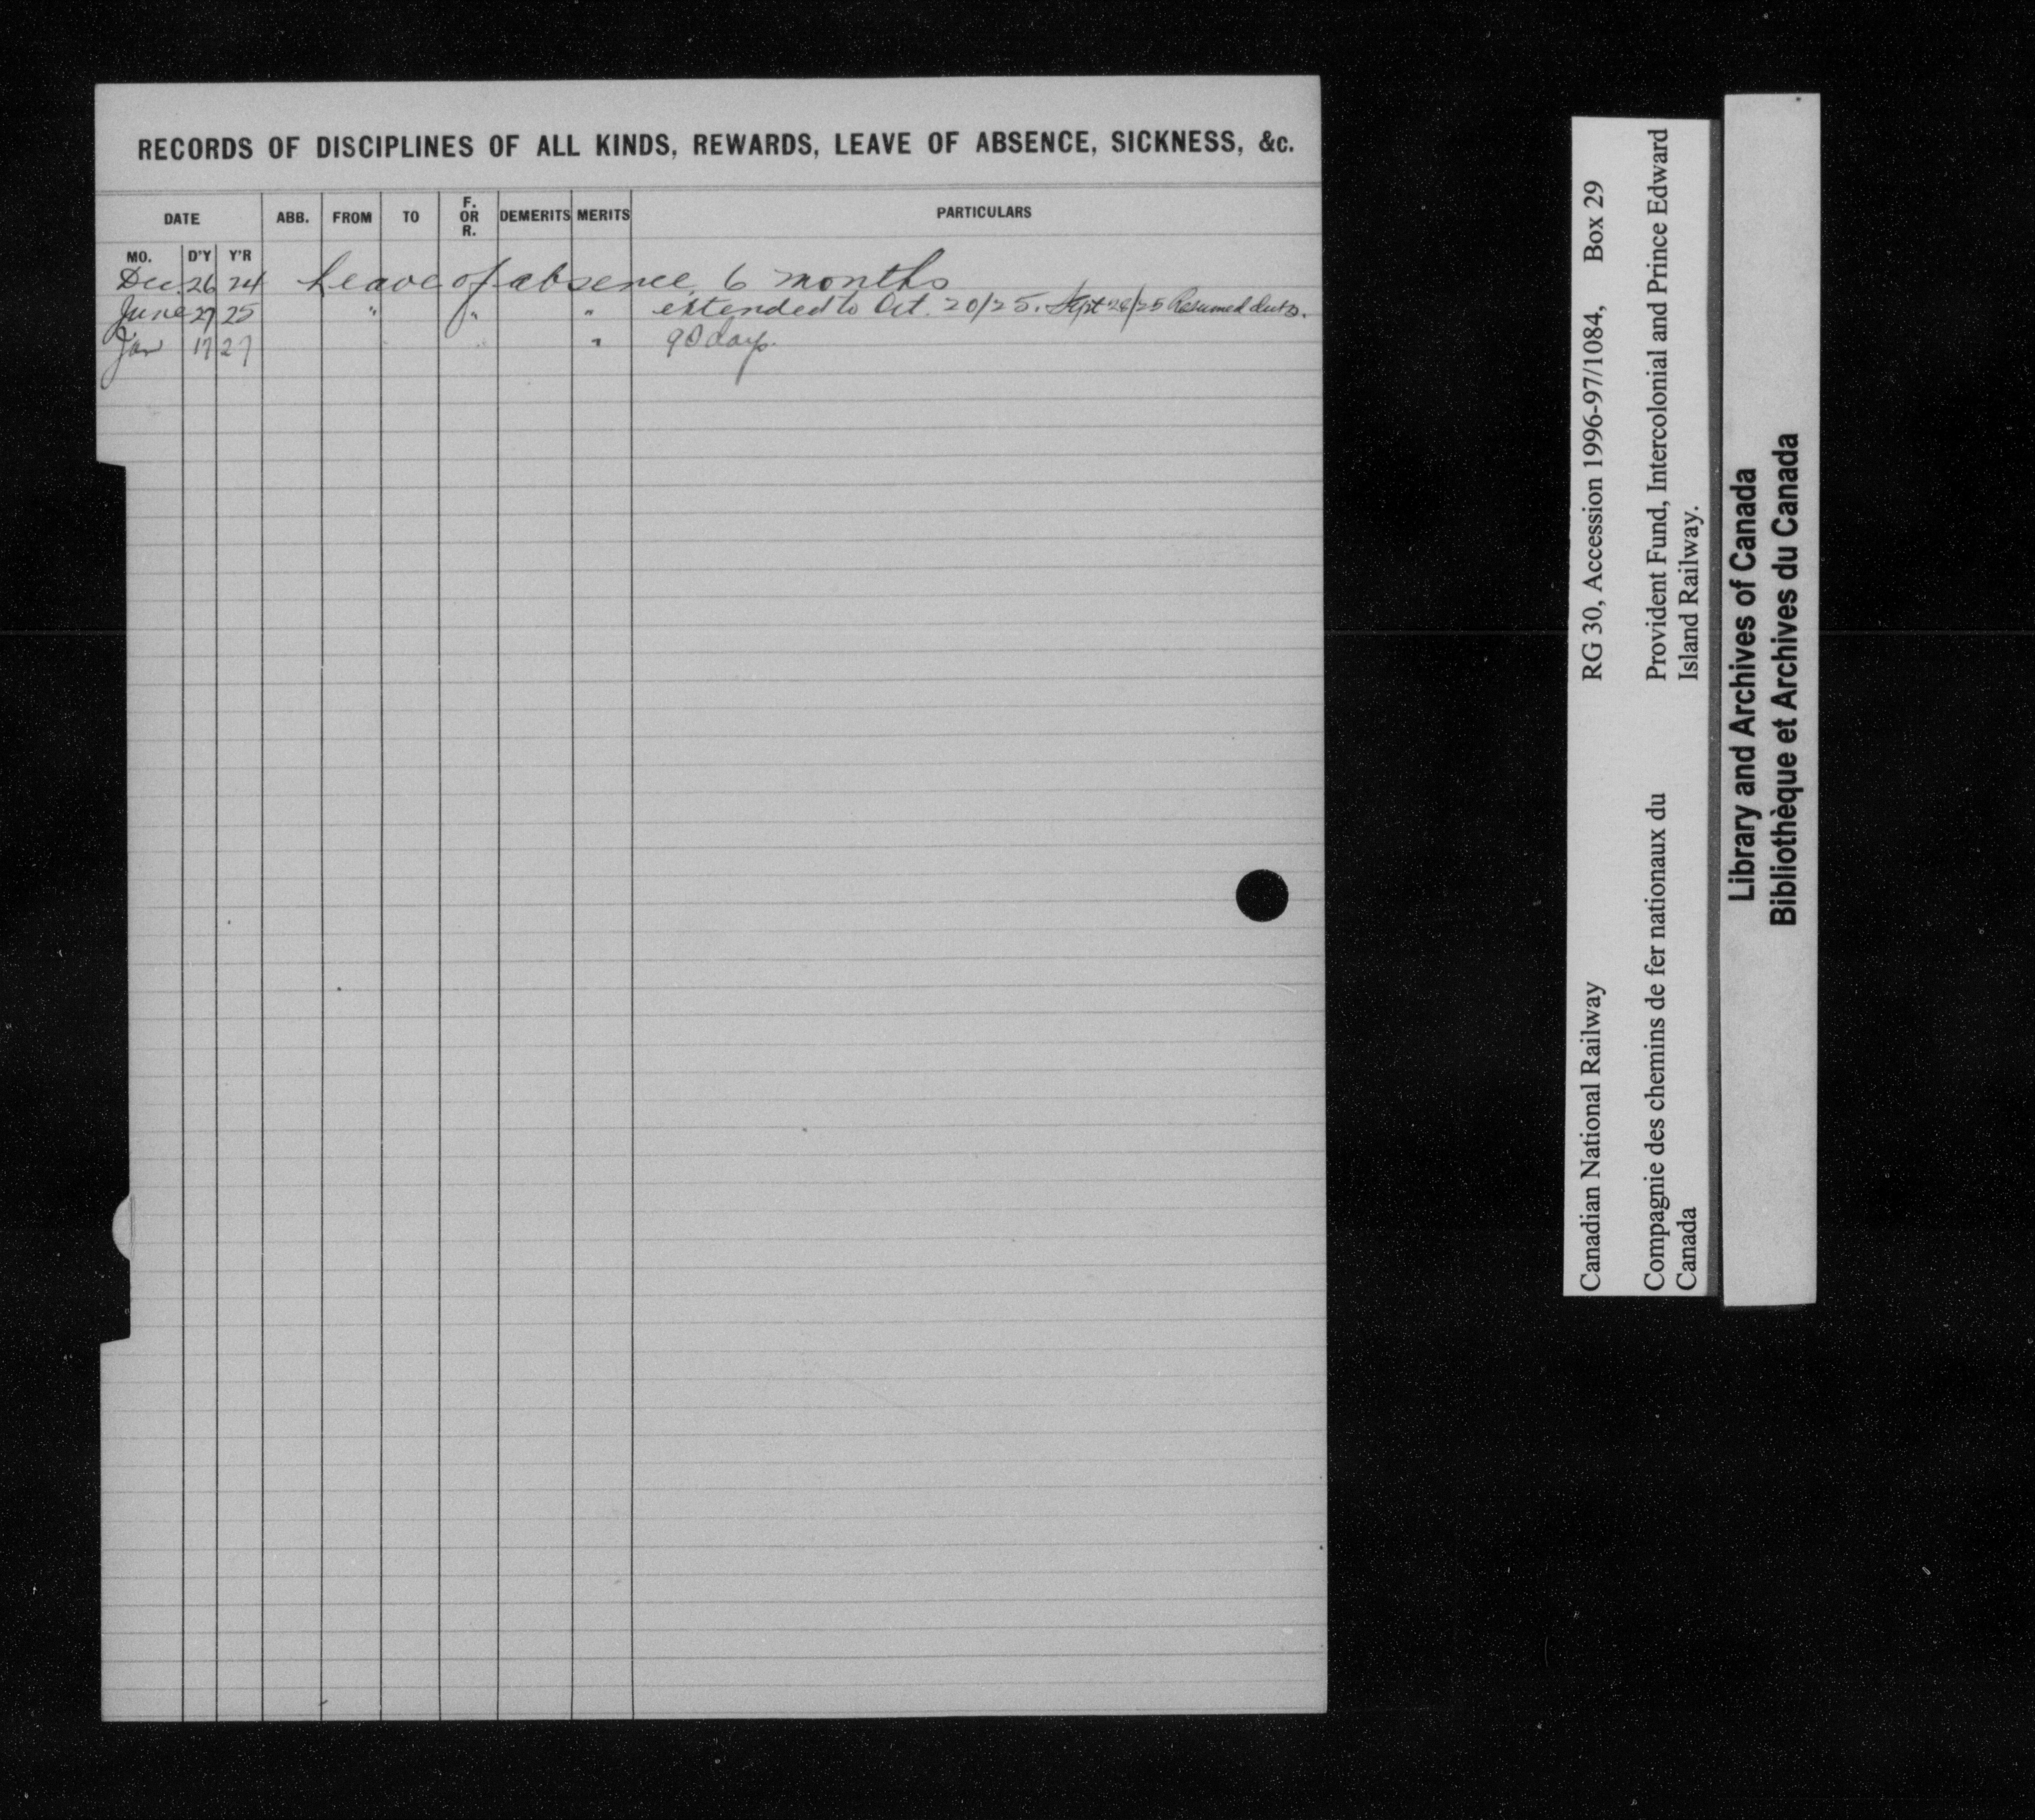 RECORDS OF DISCIPLINES OF ALL KINDS, REWARDS, LEAVE OF ABSENCE, SICKNESS, &c.
DATE ABB. FROM TO F. OR R. DEMERITS MERITS PARTICULARS
MO. D'Y Y'R
Dec. 26 24 Leave of absence 6 months
June 27 25 " " " extended to Oct. 20/25. Sept 28/25 Resumed duty.
Jan 17 27 " " " 90 days.
Canadian National Railway RG 30, Accession 1996-97/1084, Box 29
Compagnie des chemins de fer nationaux du Provident Fund, Intercolonial and Prince Edward
Canada Island Railway.
Library and Archives of Canada
Bibliothèque et Archives du Canada